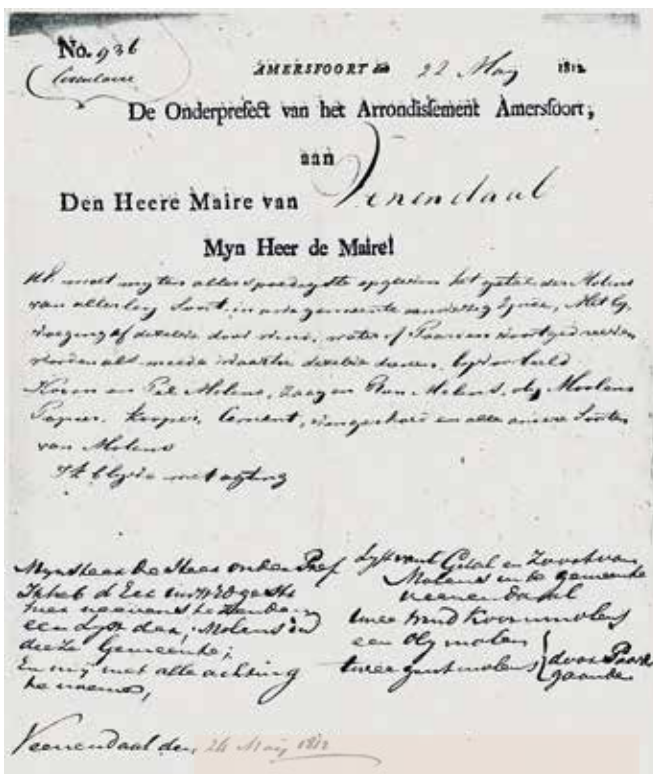 No. 936
Circulaire
AMERSFOORT den 22 May 1812
De Onderprefect van het Arrondissement Amersfoort,
aan
Den Heere Maire van Venendaal
Myn Heer de Maire!
moet my ten allerspoedigste opgeven het getal der Molens
van allerley Soort, in uwe gemeente aanwezig zynde, Met by
voeging of dezelve door wind, water of Paarden voortgedreven
worden als meede waartoe dezelve dienen, byvoorbeeld
Koorn en Pel Molens, Zaag en Molens, oly Moolens
Papier, Koper, Cement, en alle andere Soorten
van Molens
Ik blyve met agting
Mynheer De Heer onder Pref
Ik heb d Eer UwEdgeste
hier nevens te Zenden
een Lyst der Molens in
deeze Gemeente,
En my met alle achting
te noeme,
Lyst van't Getal en Zoort van
Molens in de gemeente
Veenendaal
twee wind Koornmolens
een Oly molen
twee gortmolens door Paarde
gaande
Veenendaal den, 26 May 1812